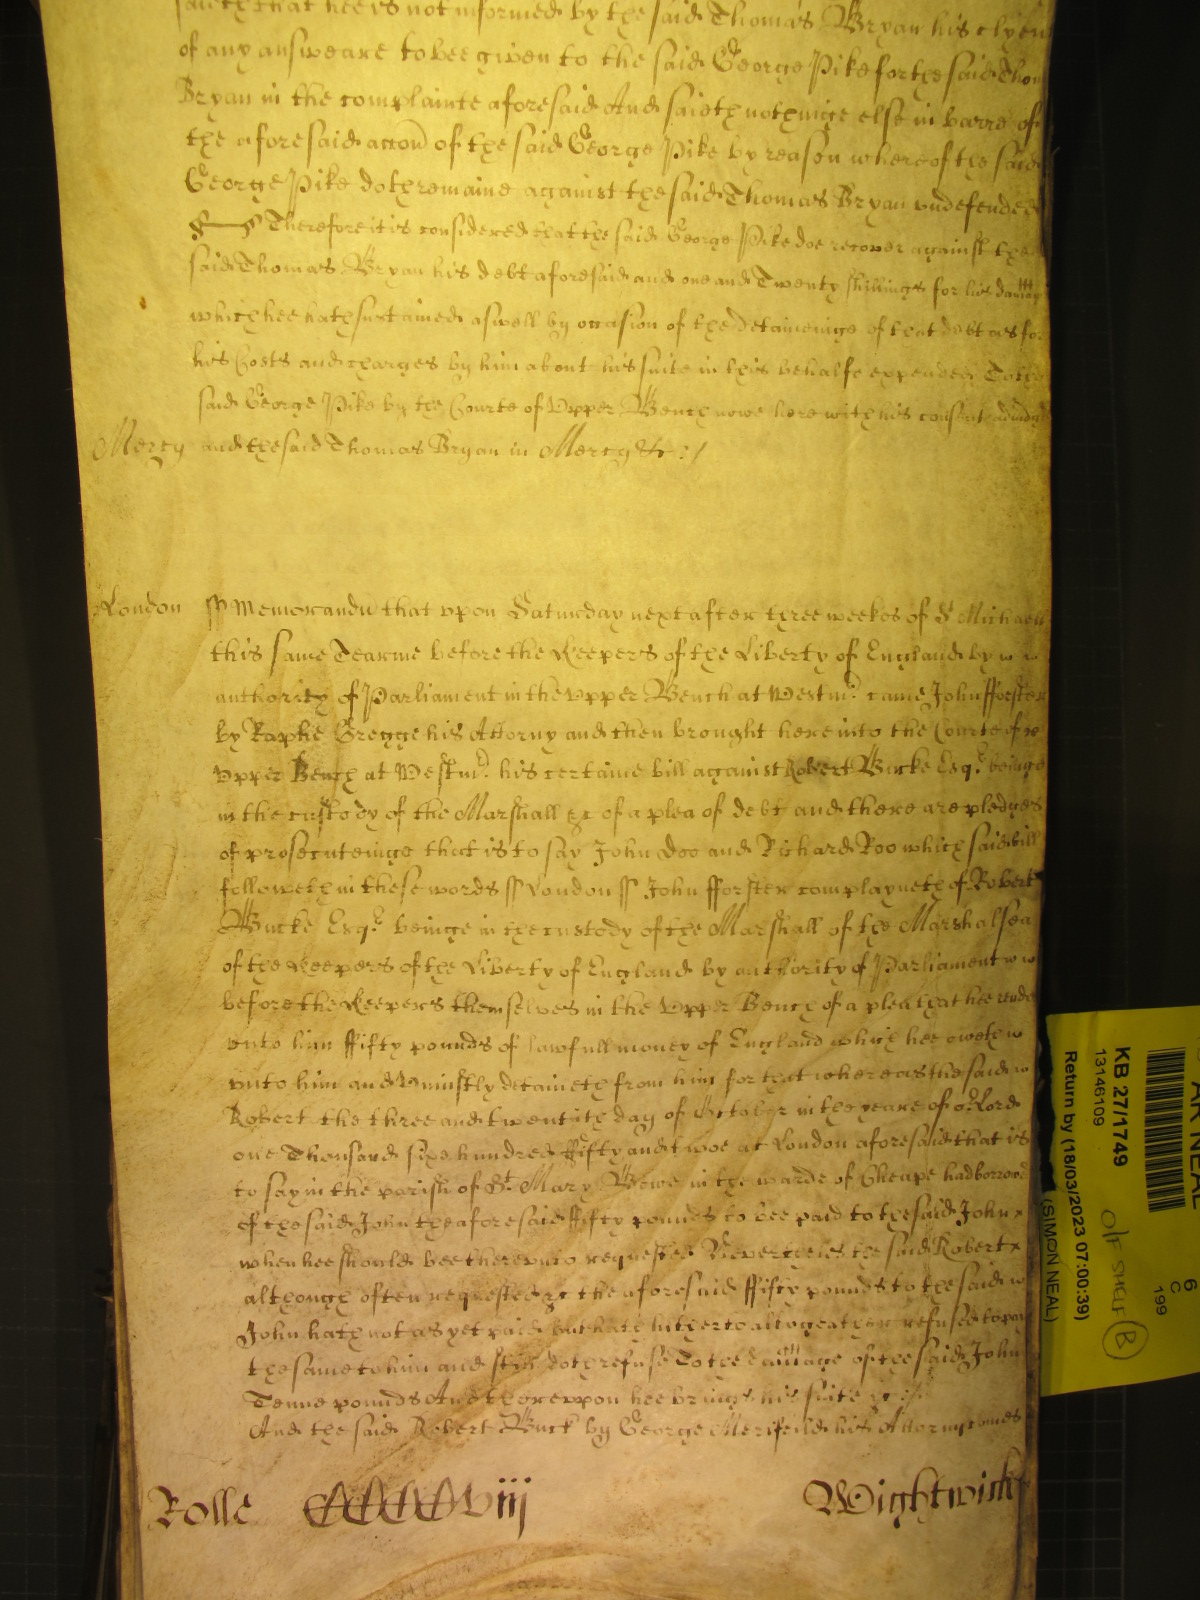 saieth that hee is not informed by the said Thomas Bryan his clyent
of any answeare to bee given to the said George Pike for the said Thom
Bryan in the complainte aforesaid And saieth nothinge else in barre of
the aforesaid accon of the said George Pike by reason whereof the said
George Pike doth remaine against the said Thomas Bryan undefended
Therefore it is considered that the said George Pike doe recover against the
said Thomas Bryan his debt aforesaid and one and Twenty shillings for his damag
which hee hath sustained aswell by occasion of the deteininge of that debt as for
his Costs and charges by him about his suite in this behalfe expended To the
said George Pike by the Courte of Upper Bench nowe here with his consent adiudg
Mercy and the said Thomas Bryan in Mercy &c
London ss Memorandu that upon Saturday next after three weekes of St Michaell
this same Tearme before the Keepers of the Liberty of England by
authority of Parliament in the Upper Bench at Westmr came John fforster
by Raphe Gregge his Attorny and then brought here into the Courte of
Upper Bench at Westmr his certaine bill against Robert Bucke Esqr beinge
in the custody of the Marshall &c of a plea of debt and there are pledges
of prosecuteinge that is to say John Doo and Richard Roo which said bill
followeth in these words ss London ss John fforster complayneth of Robert
Bucke Esqr beinge in the custody of the Marshall of the Marshalsea
of the Keepers of the Liberty of England by authority of Parliament
before the Keepers themselves in the Upper Bench of a plea that hee rendr
unto him ffifty pounds of lawfull money of England which hee oweth
unto him and Uniustly deteineth from him for that whereas the said
Robert the three and twentith day of October in the yeare of or Lord
one Thousand sixe hundred ffifty and twoe at London aforesaid that is
to say in the parish of St Mary Bowe in the warde of Cheape had borrowed
of the said John the aforesaid ffifty pounds to bee paid to the said John
when hee should bee thereunto requested Neverthelesse the said Robert
although often requested &c the aforesaid ffifty pounds to the said
John hath not as yet paid but hath hitherto altogeather refused to pay
the same to him and still doth refuse To the dammage of the said John
Tenne pounds And thereuppon hee brings his suite &c
And the said Robert Buck by George Merifeild his Attorny comes
Rolle CCCCVIII Wightwick
KB 27/1749
13146109
Return by (18/03/2023 07:00:39)
(SIMON NEAL)
O/F SHELF B
6
C
199